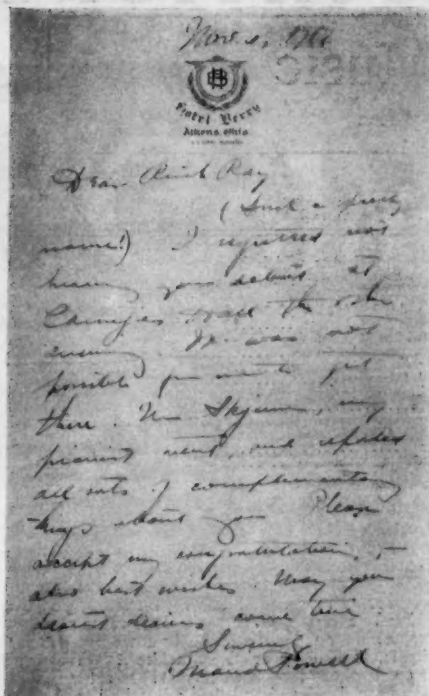 Nov. 2, 1917
HB
Hotel Berry
Athens, Ohio
Dear Ruth Ray
(Such a pretty
name!) I regretted not
hearing your debut at
Carnegie Hall the other
evening. It was not
possible for me to get
there. Mr. Skjerne, my
pianist went, and reports
all sorts of complimentary
things about you. Please
accept my congratulations, -
also best wishes. May your
dearest desires come true
Sincerely
Maud Powell